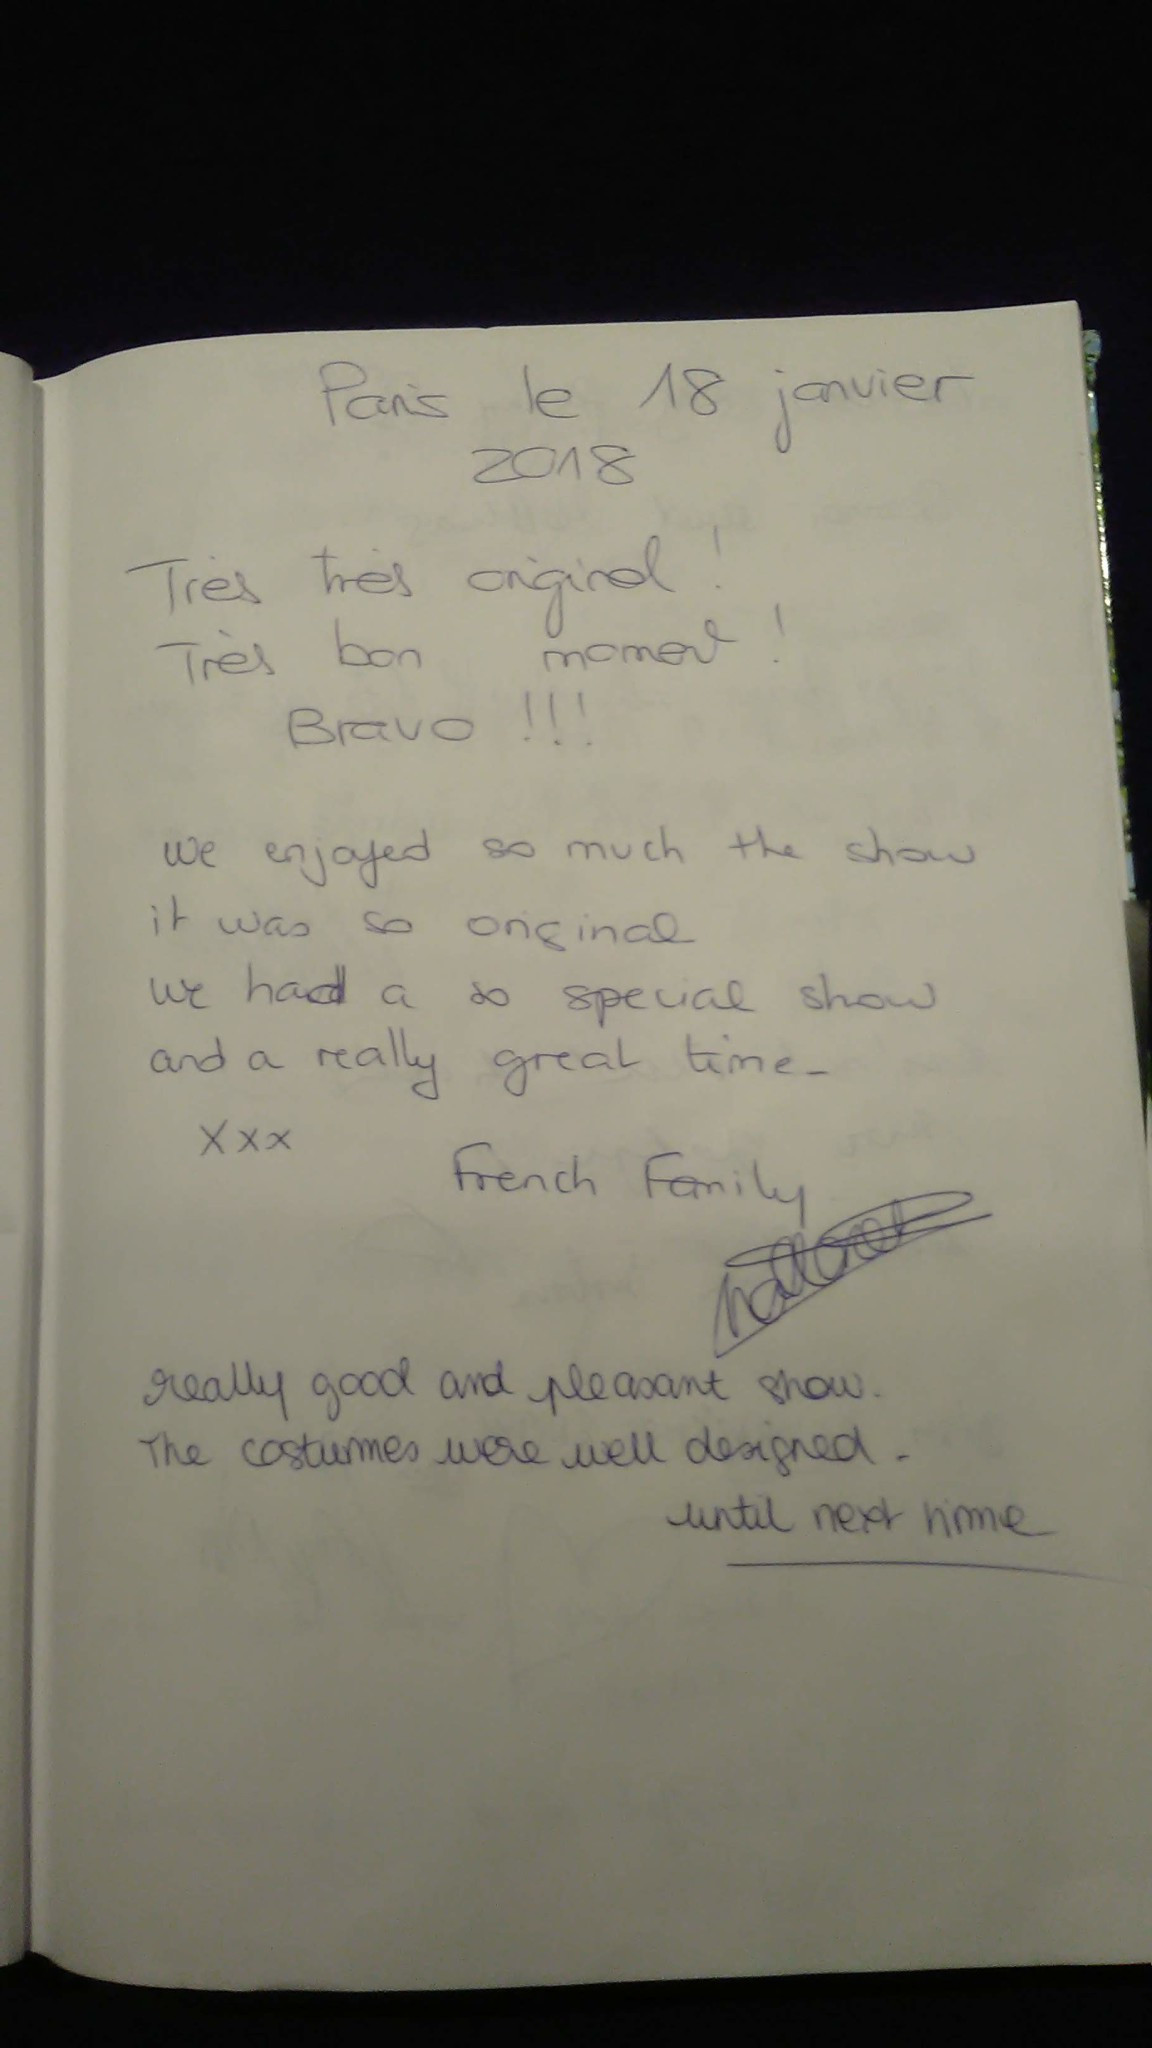 Paris le 18 janvier
2018
Très très original !
Très bon moment !
Bravo !!!
we enjoyed so much the show
it was so original
we had a so special show
and a really great time_
Xxx
French Family
really good and pleasant show.
The costumes were well designed.
until next time